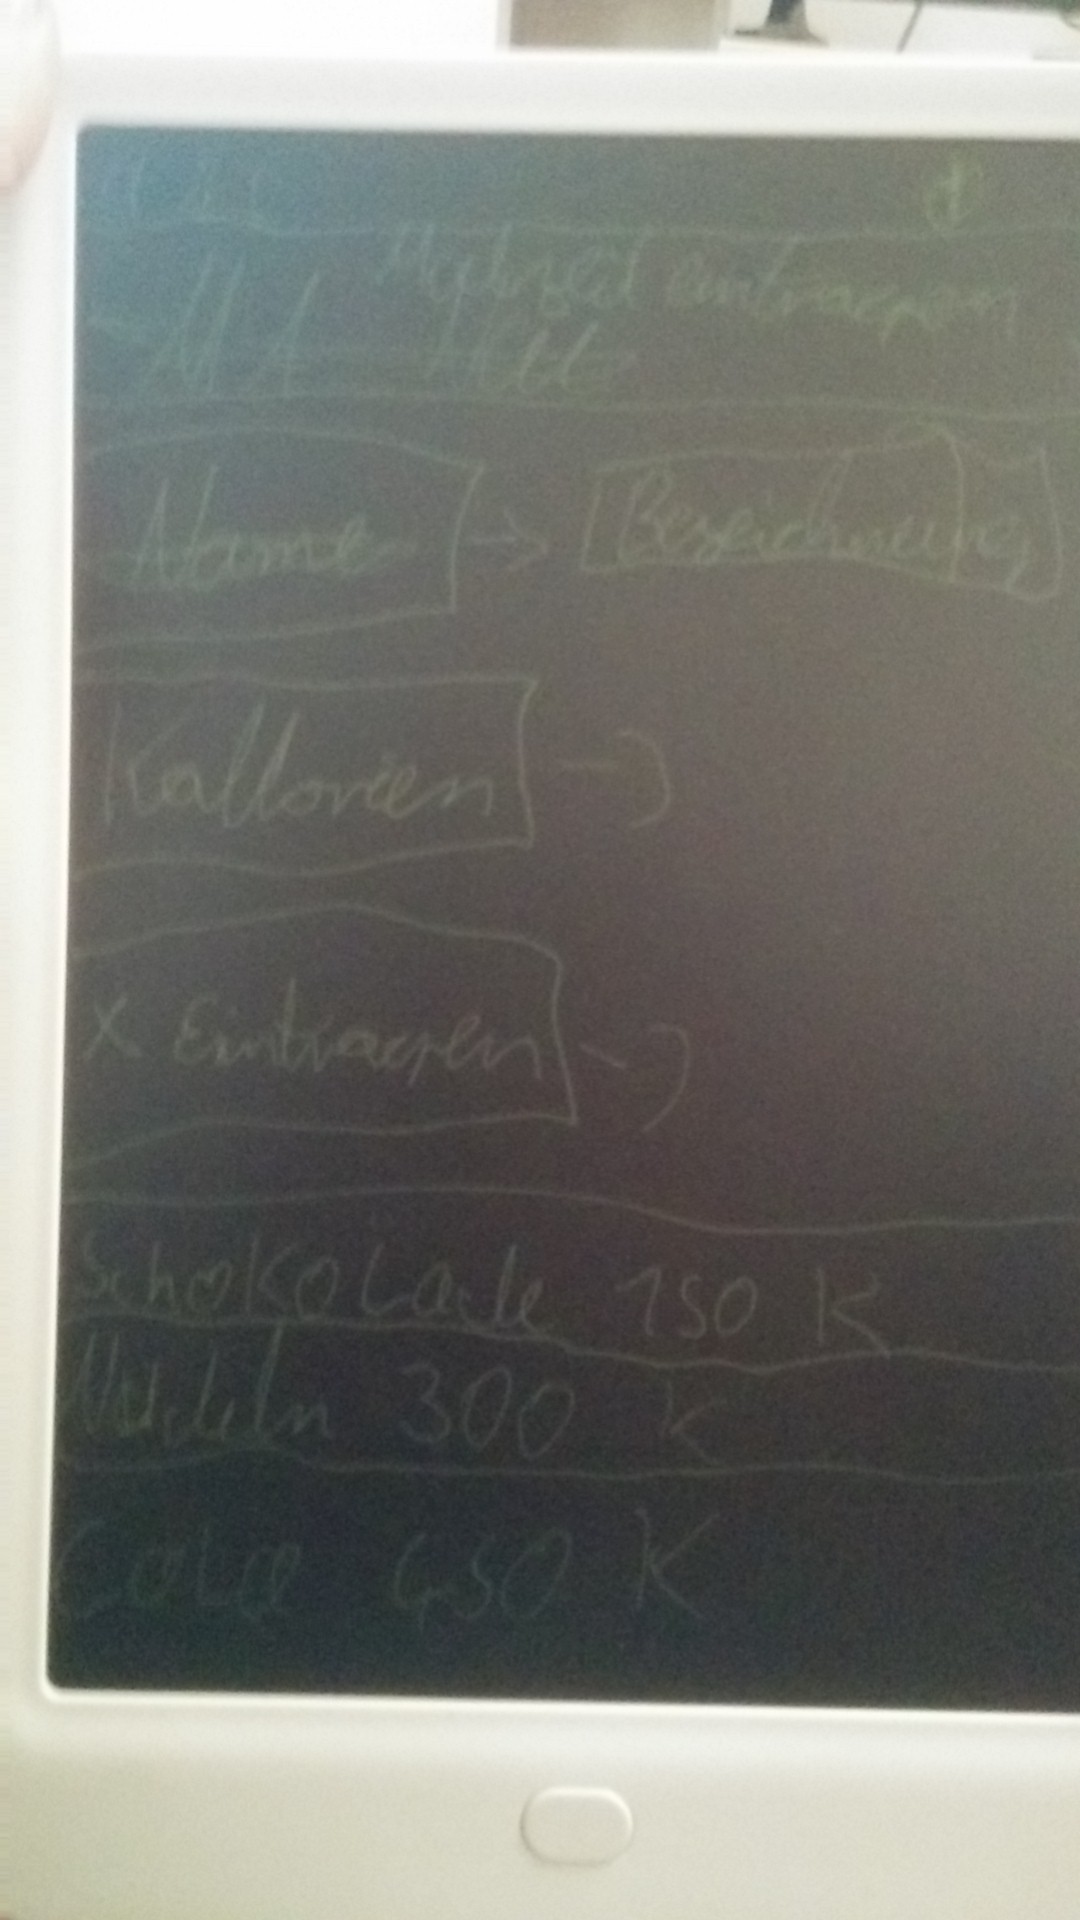 Mahlzeit eintragen
Name → Bezeichnung
Kallorien
X Eintragen
Schokolade 150 K
Nudeln 300 K
Cola 450 K